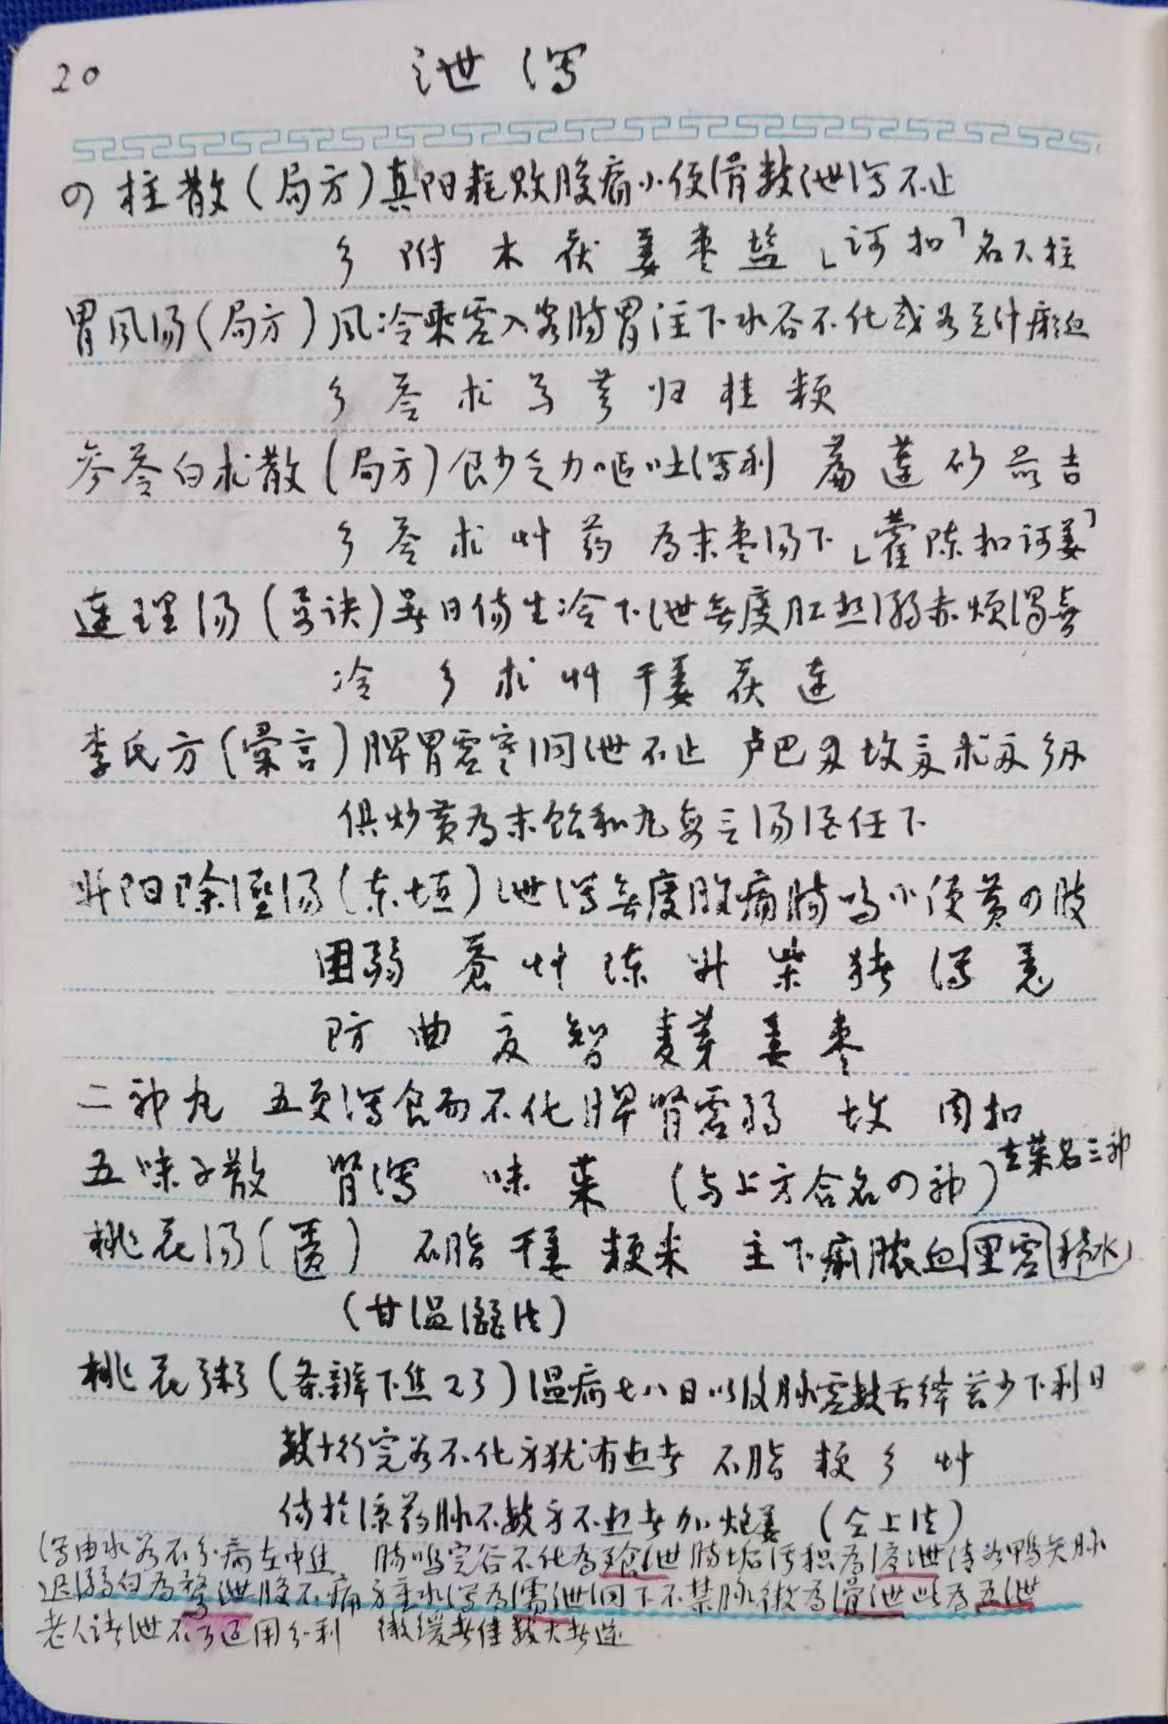 20
泄泻
四柱散（局方）真阳耗败腹痛小便滑数泄泻不止
参 附 木 茯 姜 枣 盐 「诃 扣」名六柱
胃风汤（局方）风冷乘虚入客肠胃注下水谷不化或如豆汁瘀血
参 苓 术 芎 归 桂 粳
参苓白术散（局方）食少乏力呕吐泻利 扁 莲 砂 苡 吉
参 苓 术 艹 药 为末枣汤下「藿 陈 扣 诃 姜」
连理汤（ 诀）暑日伤生冷下泄无度肛热溺赤烦渴喜
冷 参 术 艹 干姜 茯 连
李氏方（汇言）脾胃虚寒洞泄不止 卢巴 故 术
俱炒黄为末饴和丸 汤酒任下
升阳除湿汤（东垣）泄泻无度腹痛肠鸣小便黄四肢
困弱 苍 艹 陈 升 柴 猪 泻 羌
防 曲 夏 智 麦芽 姜 枣
二神丸 五更泻食而不化脾肾虚弱 故 肉扣
五味子散 肾泻 味 萸 （与上方合名四神）去萸名三神
桃花汤（匮） 石脂 干姜 粳米 主下痢脓血里虚积水
（甘温涩法）
桃花粥（条辨下焦23）温病七八日以后脉虚数舌绛苔少下利日
数十行完谷不化身犹有热者 石脂 粳 参 艹
伤于凉药脉不数身不热者加炮姜 （仝上法）
泻由水谷不分病在中焦 肠鸣完谷不化为飧泄 肠垢污积为 泄 清如鸭矢脉
迟溺白为鹜泄 腹不痛身重水泻为濡泄 洞下不禁脉微为滑泄 此为五泄
老人诸泄不可过用分利 微缓者佳数大者逆